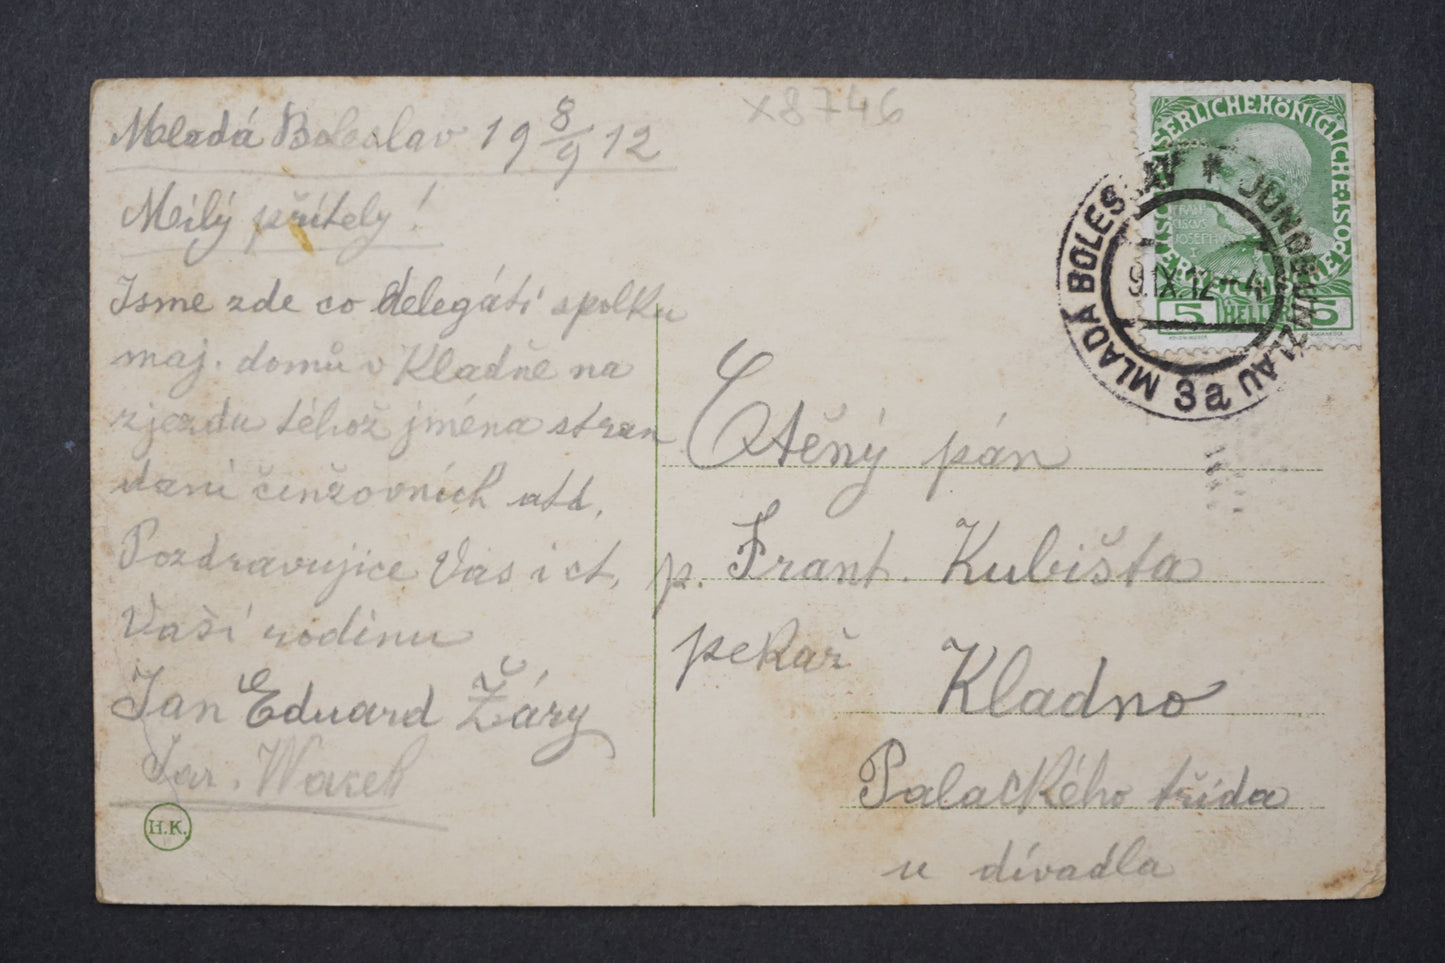 x8746
Mladá Boleslav 19 8/9 12
Milý přítely!
Jsme zde co delegáti spolku
maj. domů v Kladně na
zjezdu téhož jména stran
daní činžovních atd.
Pozdravujice Vas i ct.
Vaší rodinu
Jan Eduard Žáry
Jar.
H.K.
KAISERLICHE KÖNIGLICHE ÖSTERREICHISCHE POST
FRAN
CISCUS
JOSEPHUS
I
5 HELLER 5
MLADÁ BOLESLAV * JUNGBUNZLAU
9.IX.12 4
3a
Ctěný pán
p. Frant. Kubišta
pekař
Kladno
Palackého třída
u divadla